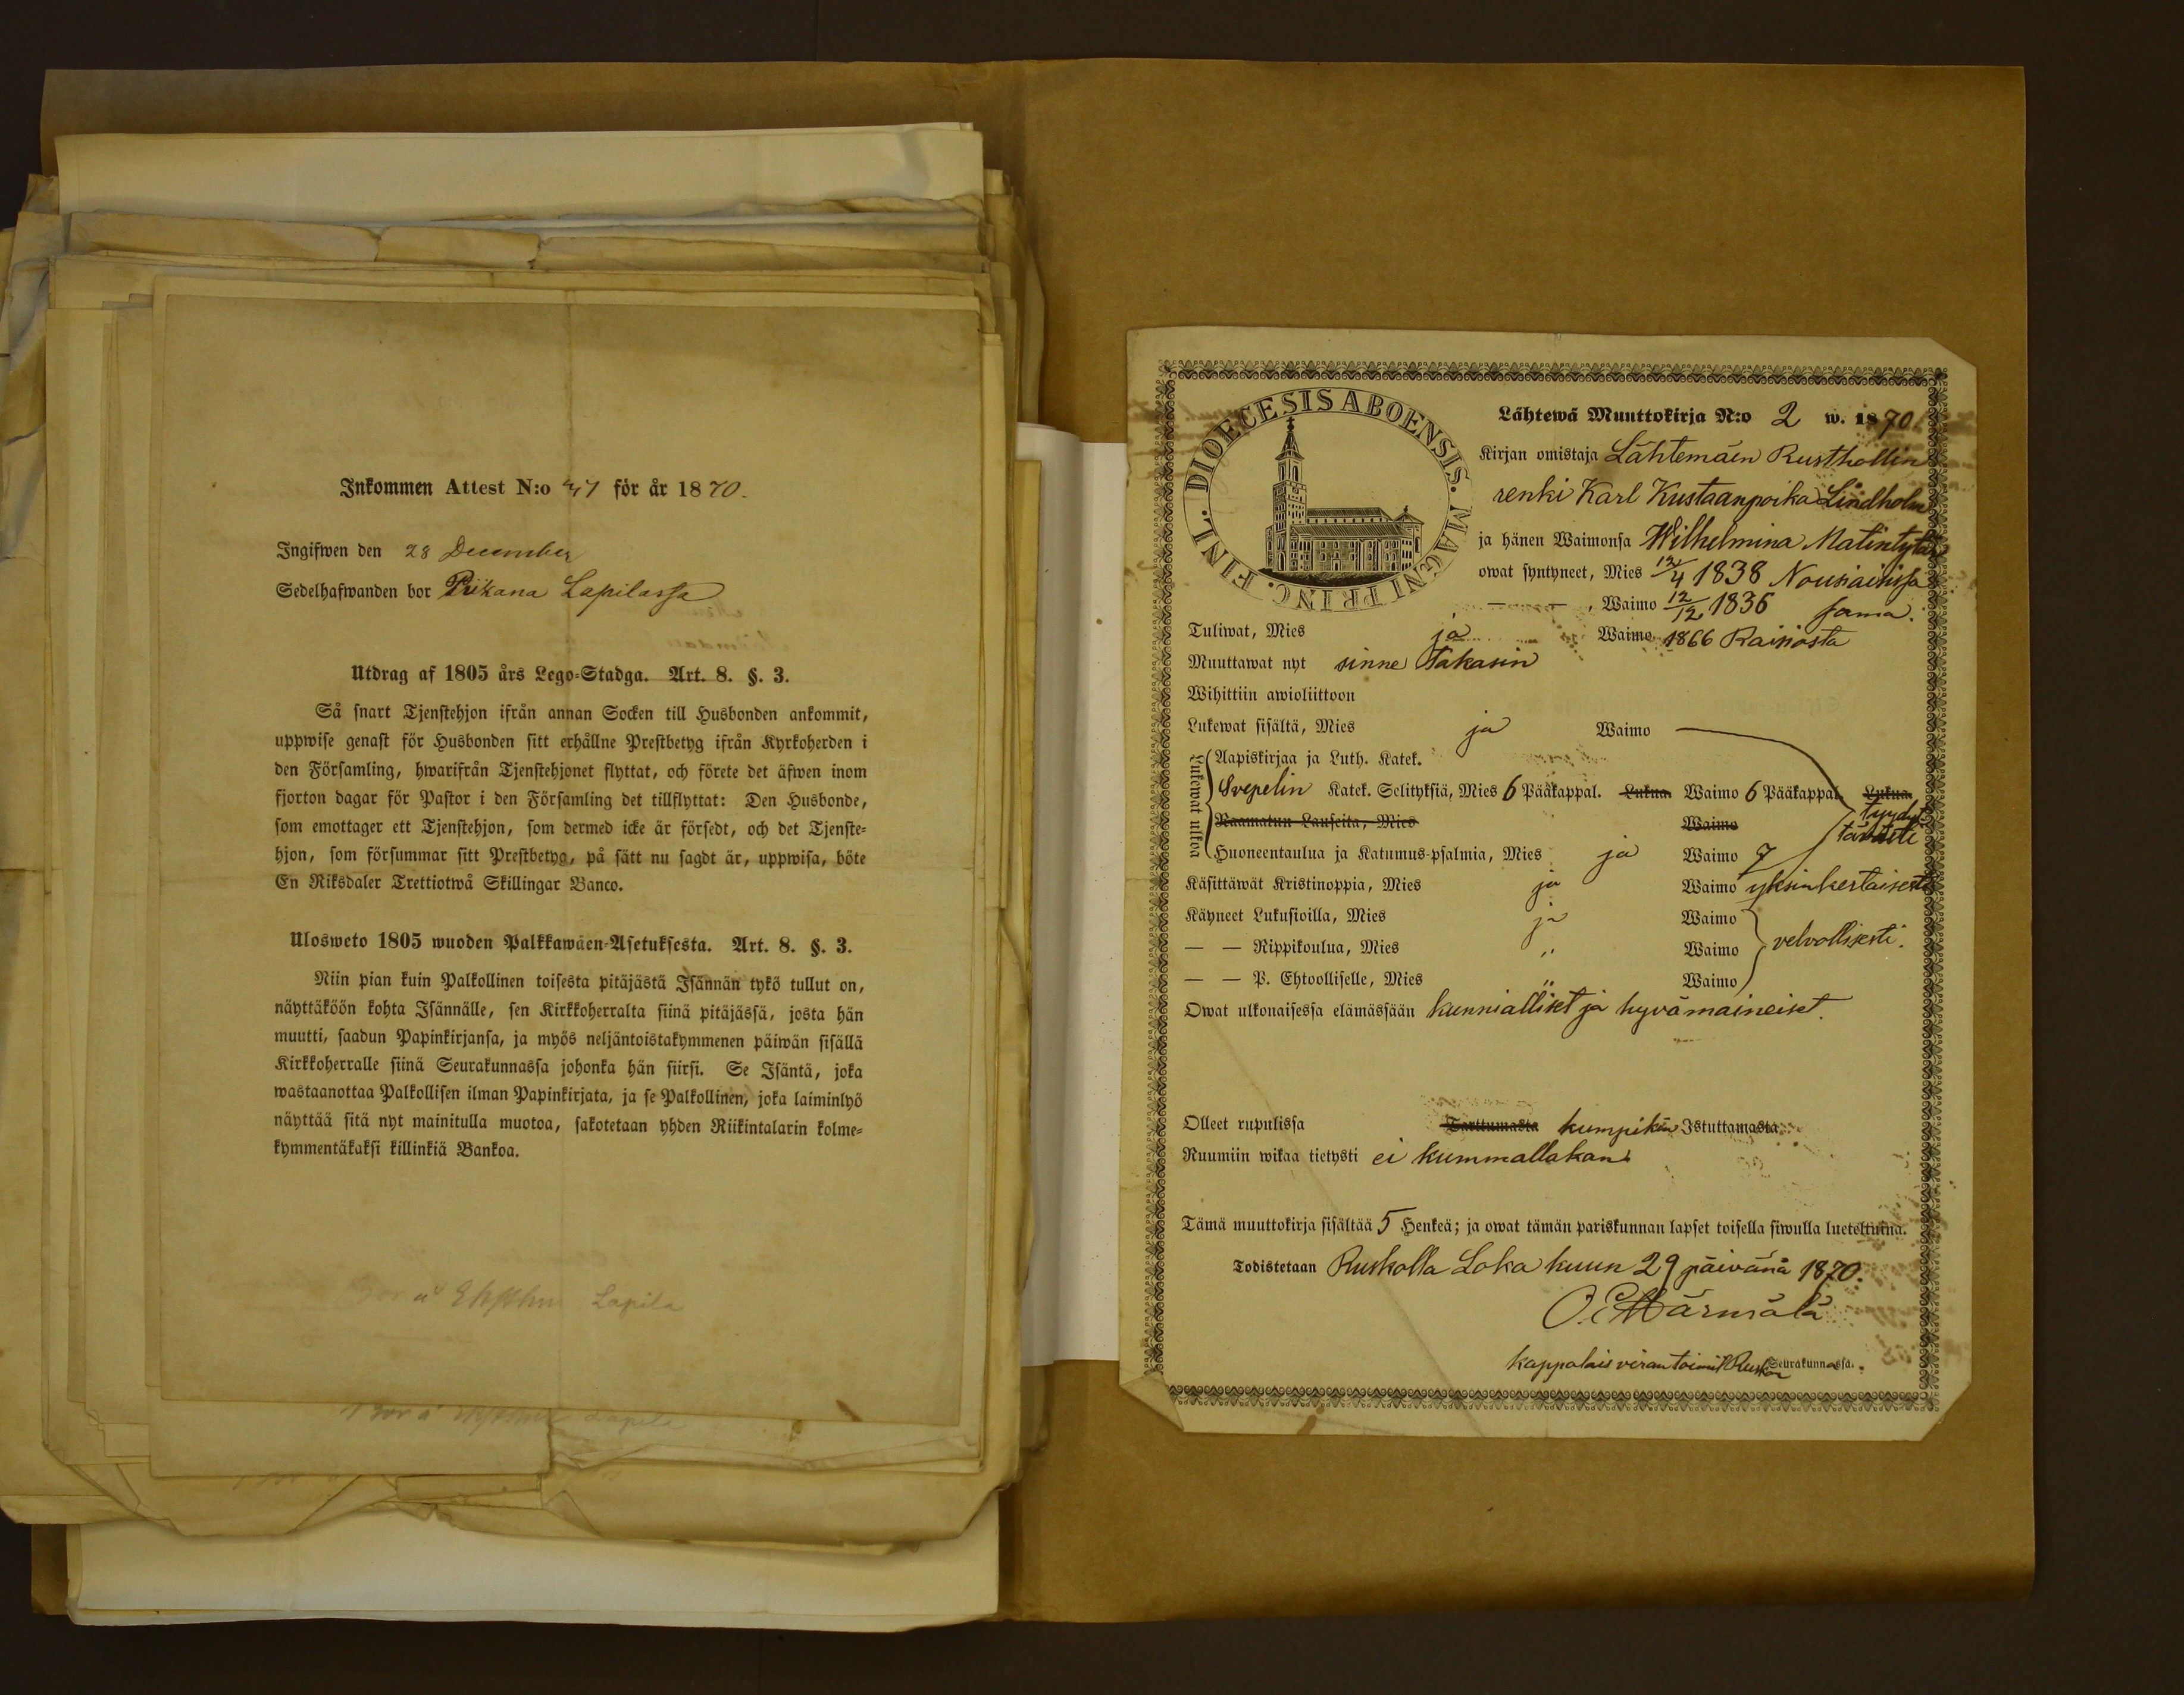 Inkommen Attest N:o 41 för år 1870.
Ingifwen den 28 December
Sedelhafwanden bor Piikana Lapilassa
Utdrag af 1805 års Lego-Stadga. Art. 8. §. 3.
Så snart Tjenstehjon ifrån annan Socken till Husbonden ankommit,
uppwise genast för Husbonden sitt erhållne Prestbetyg ifrån Kyrkoherden i
den Församling, hwarifrån Tjenstehjonet flyttat, och förete det äfwen inom
fjorton dagar för Pastor i den Församling det tillflyttat: Den Husbonde,
som emottager ett Tjenstehjon, som dermed icke är försedt, och det Tjenste-
hjon, som försummar sitt Prestbetyg, på sätt nu sagdt är, uppwisa, böte
En Riksdaler Trettiotwå Skillingar Banco.
Ulosweto 1805 wuoden Palkkawäen-Asetuksesta. Art. 8. §. 3.
Niin pian kuin Palkollinen toisesta pitäjästä Isännän tykö tullut on,
näyttäköön kohta Isännälle, sen Kirkkoherralta siinä pitäjässä, josta hän
muutti, saadun Papinkirjansa, ja myös neljäntoistakymmenen päiwän sisällä
Kirkkoherralle siinä Seurakunnassa johonka hän siirsi. Se Isäntä, joka
wastaanottaa Palkollisen ilman Papinkirjata, ja se Palkollinen, joka laiminlyö
näyttää sitä nyt mainitulla muotoa, sakotetaan yhden Riikintalarin kolme-
kymmentäkaksi killinkiä Bankoa.
Lapila
Lapila
DIOECESIS ABOENSIS. MAGNI PRINC. FINL.
Lähtewä Muuttokirja N:o 2 w. 1870
Kirjan omistaja Lähtemäen Rusthollin
renki Karl Kustaanpoika Lindholm
ja hänen Waimonsa Wilhelmina Matintytär
owat syntyneet, Mies 12/4 1838 Nousiaisissa
— , Waimo 12/12 1836 sama.
Tuliwat, Mies ja Waimo 1866 Raisiosta
Muuttawat nyt sinne takasin
Wihittiin awioliittoon
Lukewat sisältä, Mies ja Waimo
Lukewat ulkoa
Aapiskirjaa ja Luth. Katek.
Svepelin Katek. Selityksiä, Mies 6 Pääkappal. Lukua. Waimo 6 Pääkappal. Lukua.
tyydyt-
tävästi
Raamatun Lauseita, Mies Waimo
Huoneentaulua ja Katumus-psalmia, Mies ja Waimo 7
Käsittäwät Kristinoppia, Mies ja Waimo yksinkertaisesti
Käyneet Lukusioilla, Mies ja Waimo
— — Rippikoulua, Mies " Waimo velvollisesti.
— — P. Ehtoolliselle, Mies " Waimo
Owat ulkonaisessa elämässään kunnialliset ja hyvämaineiset.
Olleet rupulissa Tarttumasta kumpikin Istuttamasta.
Ruumiin wikaa tietysti ei kummallakan
Tämä muuttokirja sisältää 5 Henkeä; ja owat tämän pariskunnan lapset toisella siwulla lueteltuina.
Todistetaan Ruskolla Loka kuun 29 päivänä 1870.
kappalais viran toimit. Ruskon Seurakunnassa.